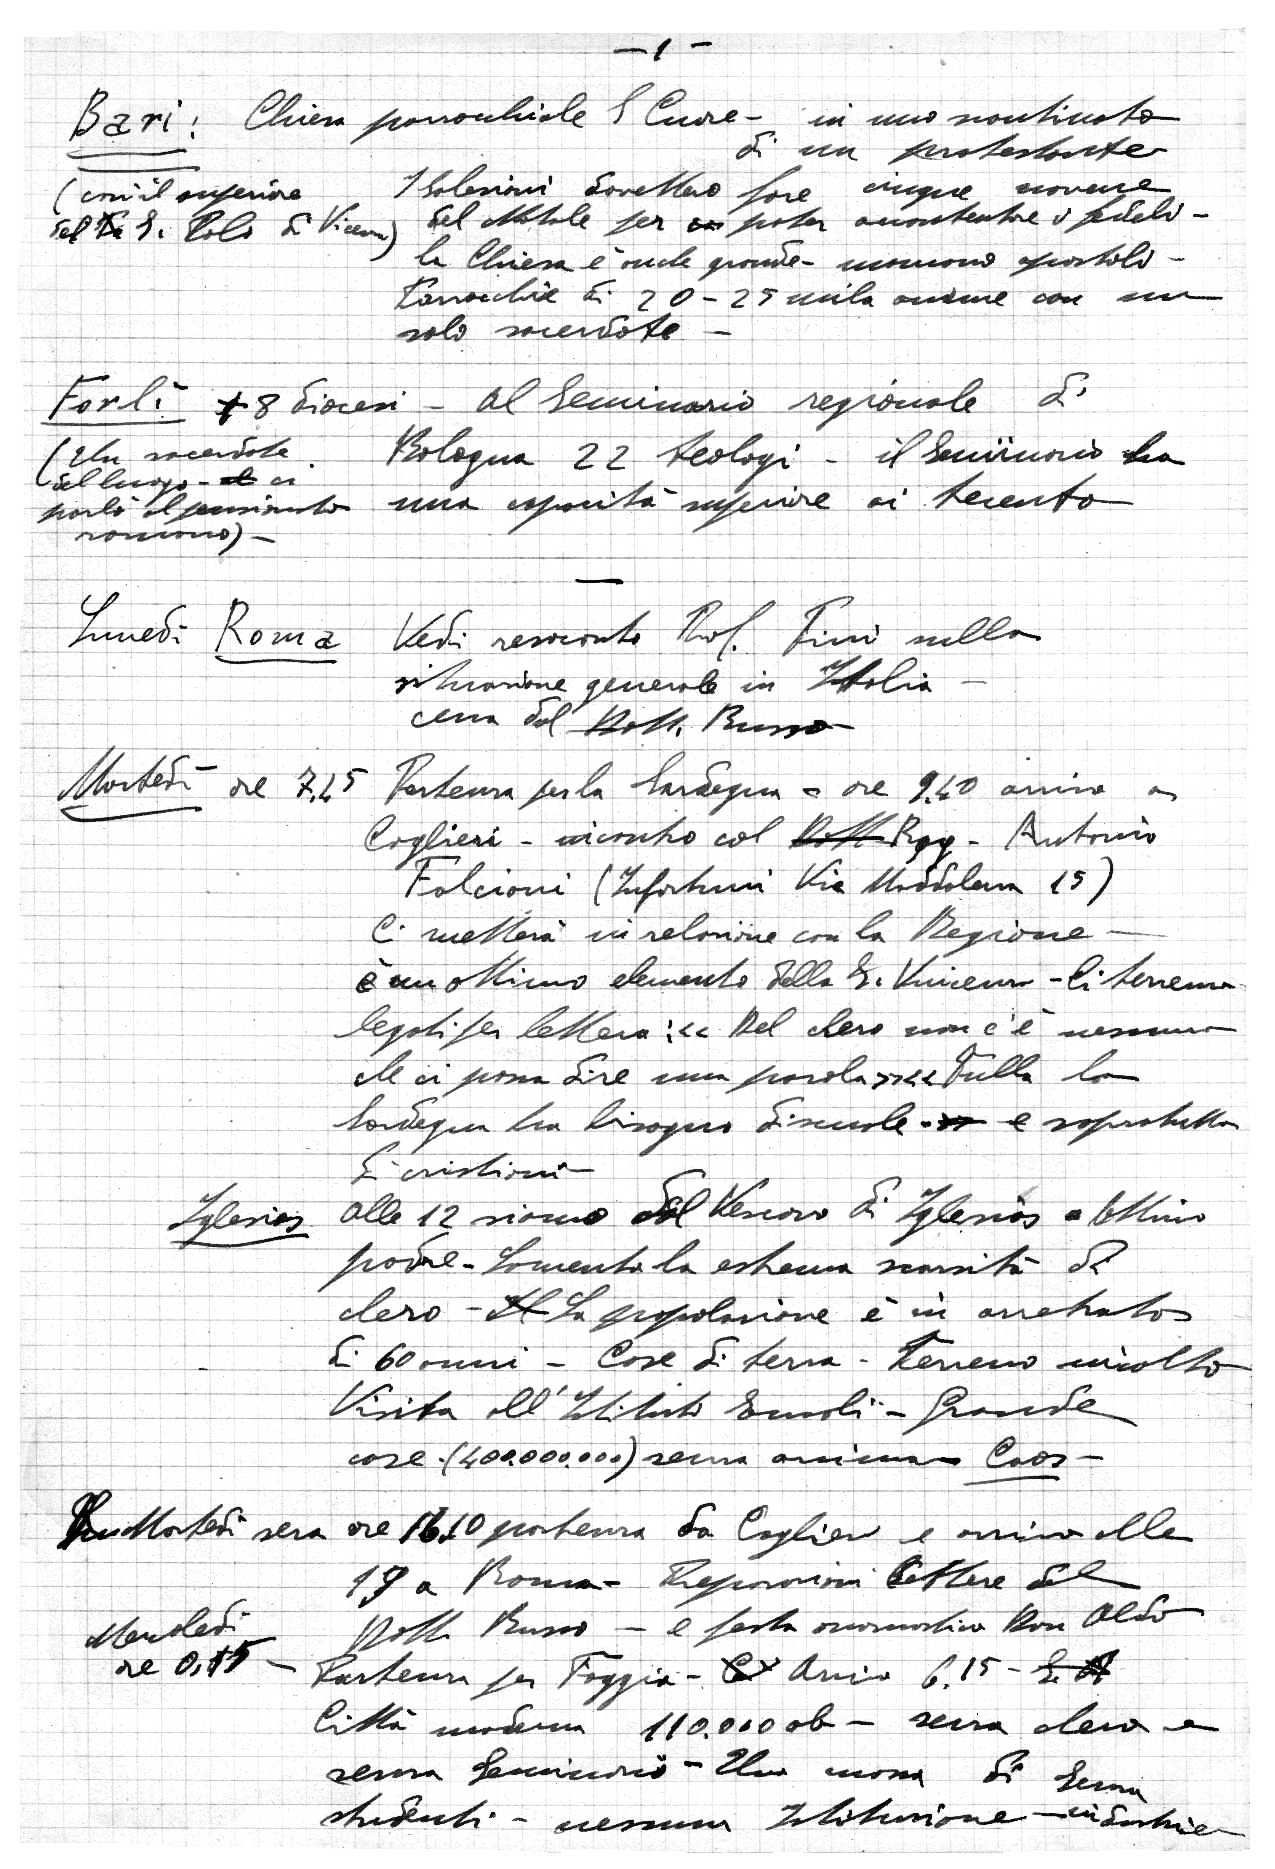 - 1 -
Bari: Chiesa parrocchiale S Cuore - in uno scantinato
di un protestante
(con il superiore
del S. Polo di Vicenza)
I Salesiani dovettero fare cinque novene
del Natale per poter accontentare i fedeli -
la Chiesa è anche grande - mancano apostoli -
Parrocchie di 20-25 mila anime con un
solo sacerdote -
Forlì + 8 diocesi - al Seminario regionale di
(Un sacerdote
del luogo - ci
parlò al pensionato
romano) -
Bologna 22 teologi - il Seminario ha
una capacità superiore ai trecento
Lunedì Roma Vedi resoconto Prof. Fini sulla
situazione generale in Italia -
cena dal Dott. Russo -
Martedì ore 7,45 Partenza per la Sardegna - ore 9.40 arrivo a
Cagliari - incontro col Rag. Antonio
Falcioni (Infortuni Via Maddalena 15)
Ci metterà in relazione con la Regione -
è un ottimo elemento della S. Vincenzo - Ci terremo
legati per lettera: << Del clero non c'è nessuno
che ci possa dire una parola >> << Tutta la
Sardegna ha bisogno di scuole - e sopratutto
di cristiani -
Iglesias alle 12 siamo dal Vescovo di Iglesias - Ottimo
padre - Lamenta la estrema scarsità di
clero - La popolazione è in arretrato
di 60 anni - Case di terra - Terreno incolto
Visita all'Istituto - Grande
case (400.000.000) senza anima - Caos -
Martedì sera ore 16.10 partenza da Cagliari e arrivo alle
19 a Roma - Preparazioni lettere del
Dott. Russo - e festa onomastico Don Aldo
Mercoledì
ore 0,15 - Partenza per Foggia - Arrivo 6.15 -
Città moderna 110.000 ab - senza clero e
senza Seminario - Una massa di
studenti - nessuna Istituzione - senza
industrie